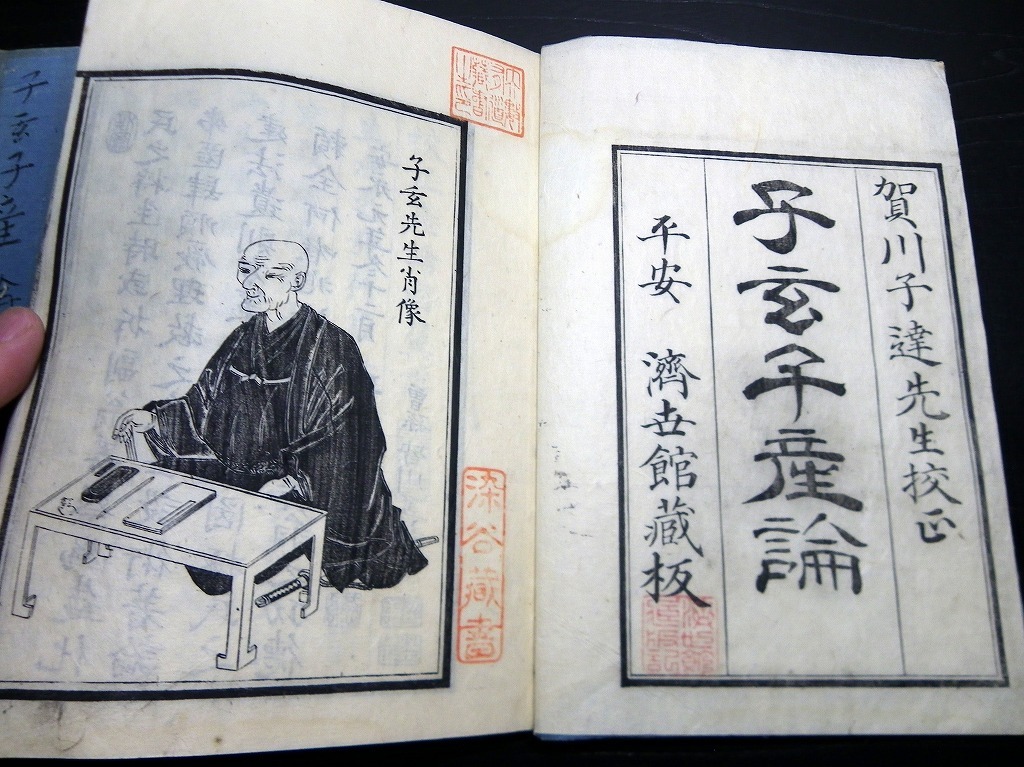 賀川子達先生挍正
子玄子産論
平安 濟世館藏板
子玄先生肖像
深谷藏書
子玄子産